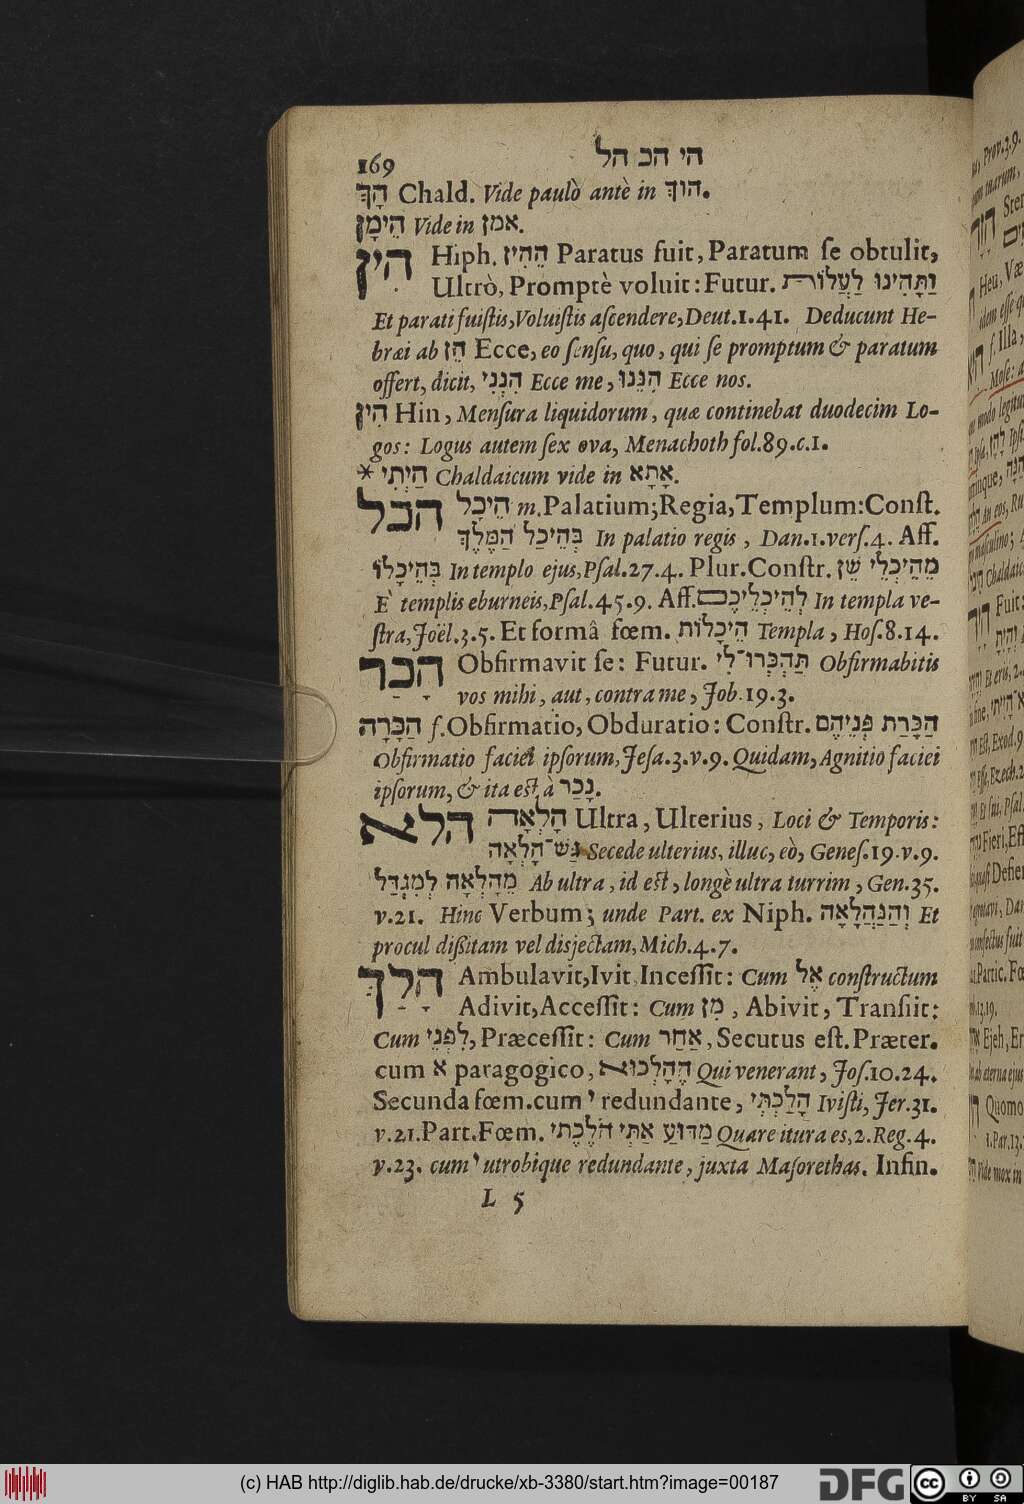 169 הי הכ הל
הָךְ Chald. Vide paulò antè in הוך.
הֵימָן Vide in אמן.
הִין Hiph. הֵהִין Paratus fuit, Paratum ſe obtulit,
Ultrò, Promptè voluit: Futur. וַתָּהִינוּ לַעֲלוֹת
Et parati fuiſtis, Voluiſtis aſcendere, Deut.1.41. Deducunt He-
bræi ab הֵן Ecce, eo ſenſu, quo, qui ſe promptum & paratum
offert, dicit, הִנְנִי Ecce me, הִנֵּנוּ Ecce nos.
הִין Hin, Menſura liquidorum, quæ continebat duodecim Lo-
gos: Logus autem ſex ova, Menachoth fol.89.c.1.
* הַיְתִי Chaldaicum vide in אָתָא.
הכל הֵיכָל m. Palatium; Regia, Templum: Conſt.
בְּהֵיכַל הַמֶּלֶךְ In palatio regis, Dan.1.verſ.4. Aff.
בְּהֵיכָלוֹ In templo ejus, Pſal.27.4. Plur. Conſtr. מֵהֵיכְלֵי שֵׁן
E templis eburneis, Pſal.45.9. Aff. לְהֵיכְלֵיכֶם In templa ve-
ſtra, Joël.3.5. Et formâ fœm. הֵיכָלוֹת Templa, Hoſ.8.14.
הָכַר Obfirmavit ſe: Futur. תַּהְכְּרוּ־לִי Obfirmabitis
vos mihi, aut, contra me, Job.19.3.
הַכָּרָה f. Obfirmatio, Obduratio: Conſtr. הַכָּרַת פְּנֵיהֶם
Obfirmatio faciei ipſorum, Jeſa.3.v.9. Quidam, Agnitio faciei
ipſorum, & ita eſt à נָכַר.
הלא הָלְאָה Ultra, Ulterius, Loci & Temporis:
גֶּשׁ־הָלְאָה Secede ulterius, illuc, eò, Geneſ.19.v.9.
מֵהָלְאָה לְמִגְדַּל Ab ultra, id eſt, longè ultra turrim, Gen.35.
v.21. Hinc Verbum; unde Part. ex Niph. וְהַנַּהֲלָאָה Et
procul diſſitam vel disjectam, Mich.4.7.
הָלַךְ Ambulavit, Ivit, Inceſſit: Cum אֶל conſtructum
Adivit, Acceſſit: Cum מִן, Abivit, Tranſiit:
Cum לִפְנֵי, Præceſſit: Cum אַחַר, Secutus eſt. Præter.
cum א paragogico, הֶהָלְכוּא Qui venerant, Joſ.10.24.
Secunda fœm. cum י redundante, הָלַכְתְּי Iviſti, Jer.31.
v.21. Part. Fœm. מַדּוּעַ אַתְּי הֹלֶכְתִּי Quare itura es, 2. Reg.4.
v.23. cum י utrobique redundante, juxta Maſorethas. Infin.
L 5
(c) HAB http://diglib.hab.de/drucke/xb-3380/start.htm?image=00187
DFG
cc BY SA